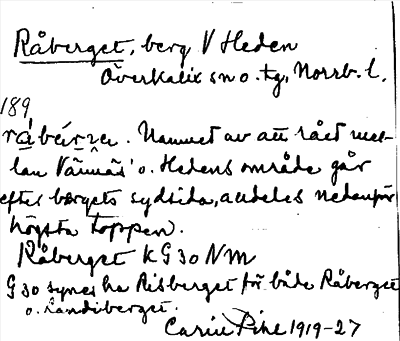 Råberget, berg V Heden
Överkalix sn o. tg, Norrb. l.
189
rå̀bǽrʒa. Namnet av att rået mel-
lan Vännäs' o. Hedens område går
efter bergets sydsida, alldeles nedanför
högsta toppen.
Råberget K G 30 NM
G 30 synes ha Risberget för både Råberget
o. Landiberget.
Carin Pihl 1919-27